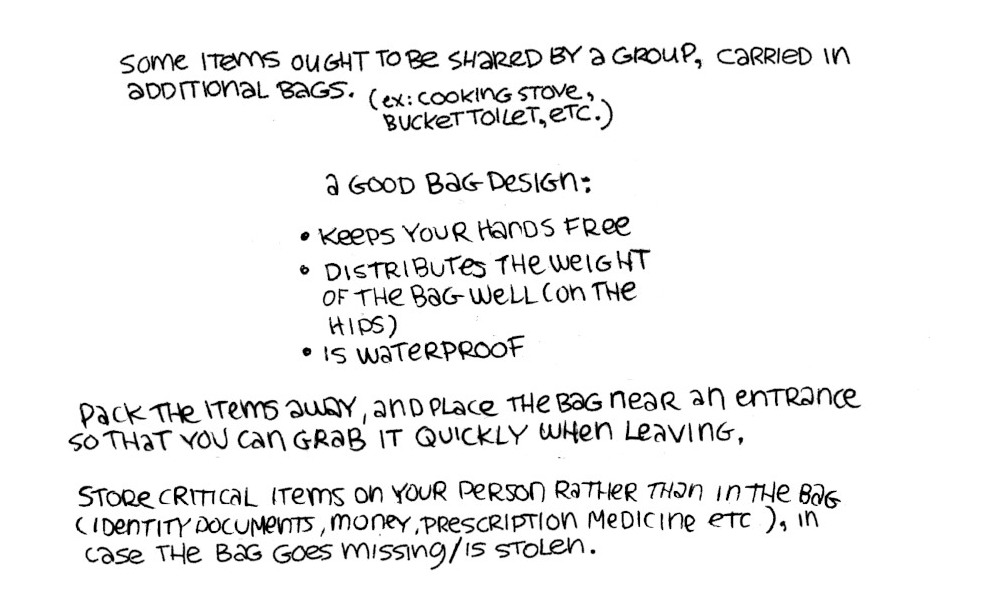 SOME ITEMS OUGHT TO BE SHARED BY A GROUP, CARRIED IN
ADDITIONAL BAGS. (EX: COOKING STOVE,
BUCKET TOILET, ETC.)
A GOOD BAG DESIGN:
• KEEPS YOUR HANDS FREE
• DISTRIBUTES THE WEIGHT
OF THE BAG WELL (ON THE
HIPS)
• IS WATERPROOF
PACK THE ITEMS AWAY, AND PLACE THE BAG NEAR AN ENTRANCE
SO THAT YOU CAN GRAB IT QUICKLY WHEN LEAVING.
STORE CRITICAL ITEMS ON YOUR PERSON RATHER THAN IN THE BAG
(IDENTITY DOCUMENTS, MONEY, PRESCRIPTION MEDICINE ETC), IN
CASE THE BAG GOES MISSING/IS STOLEN.